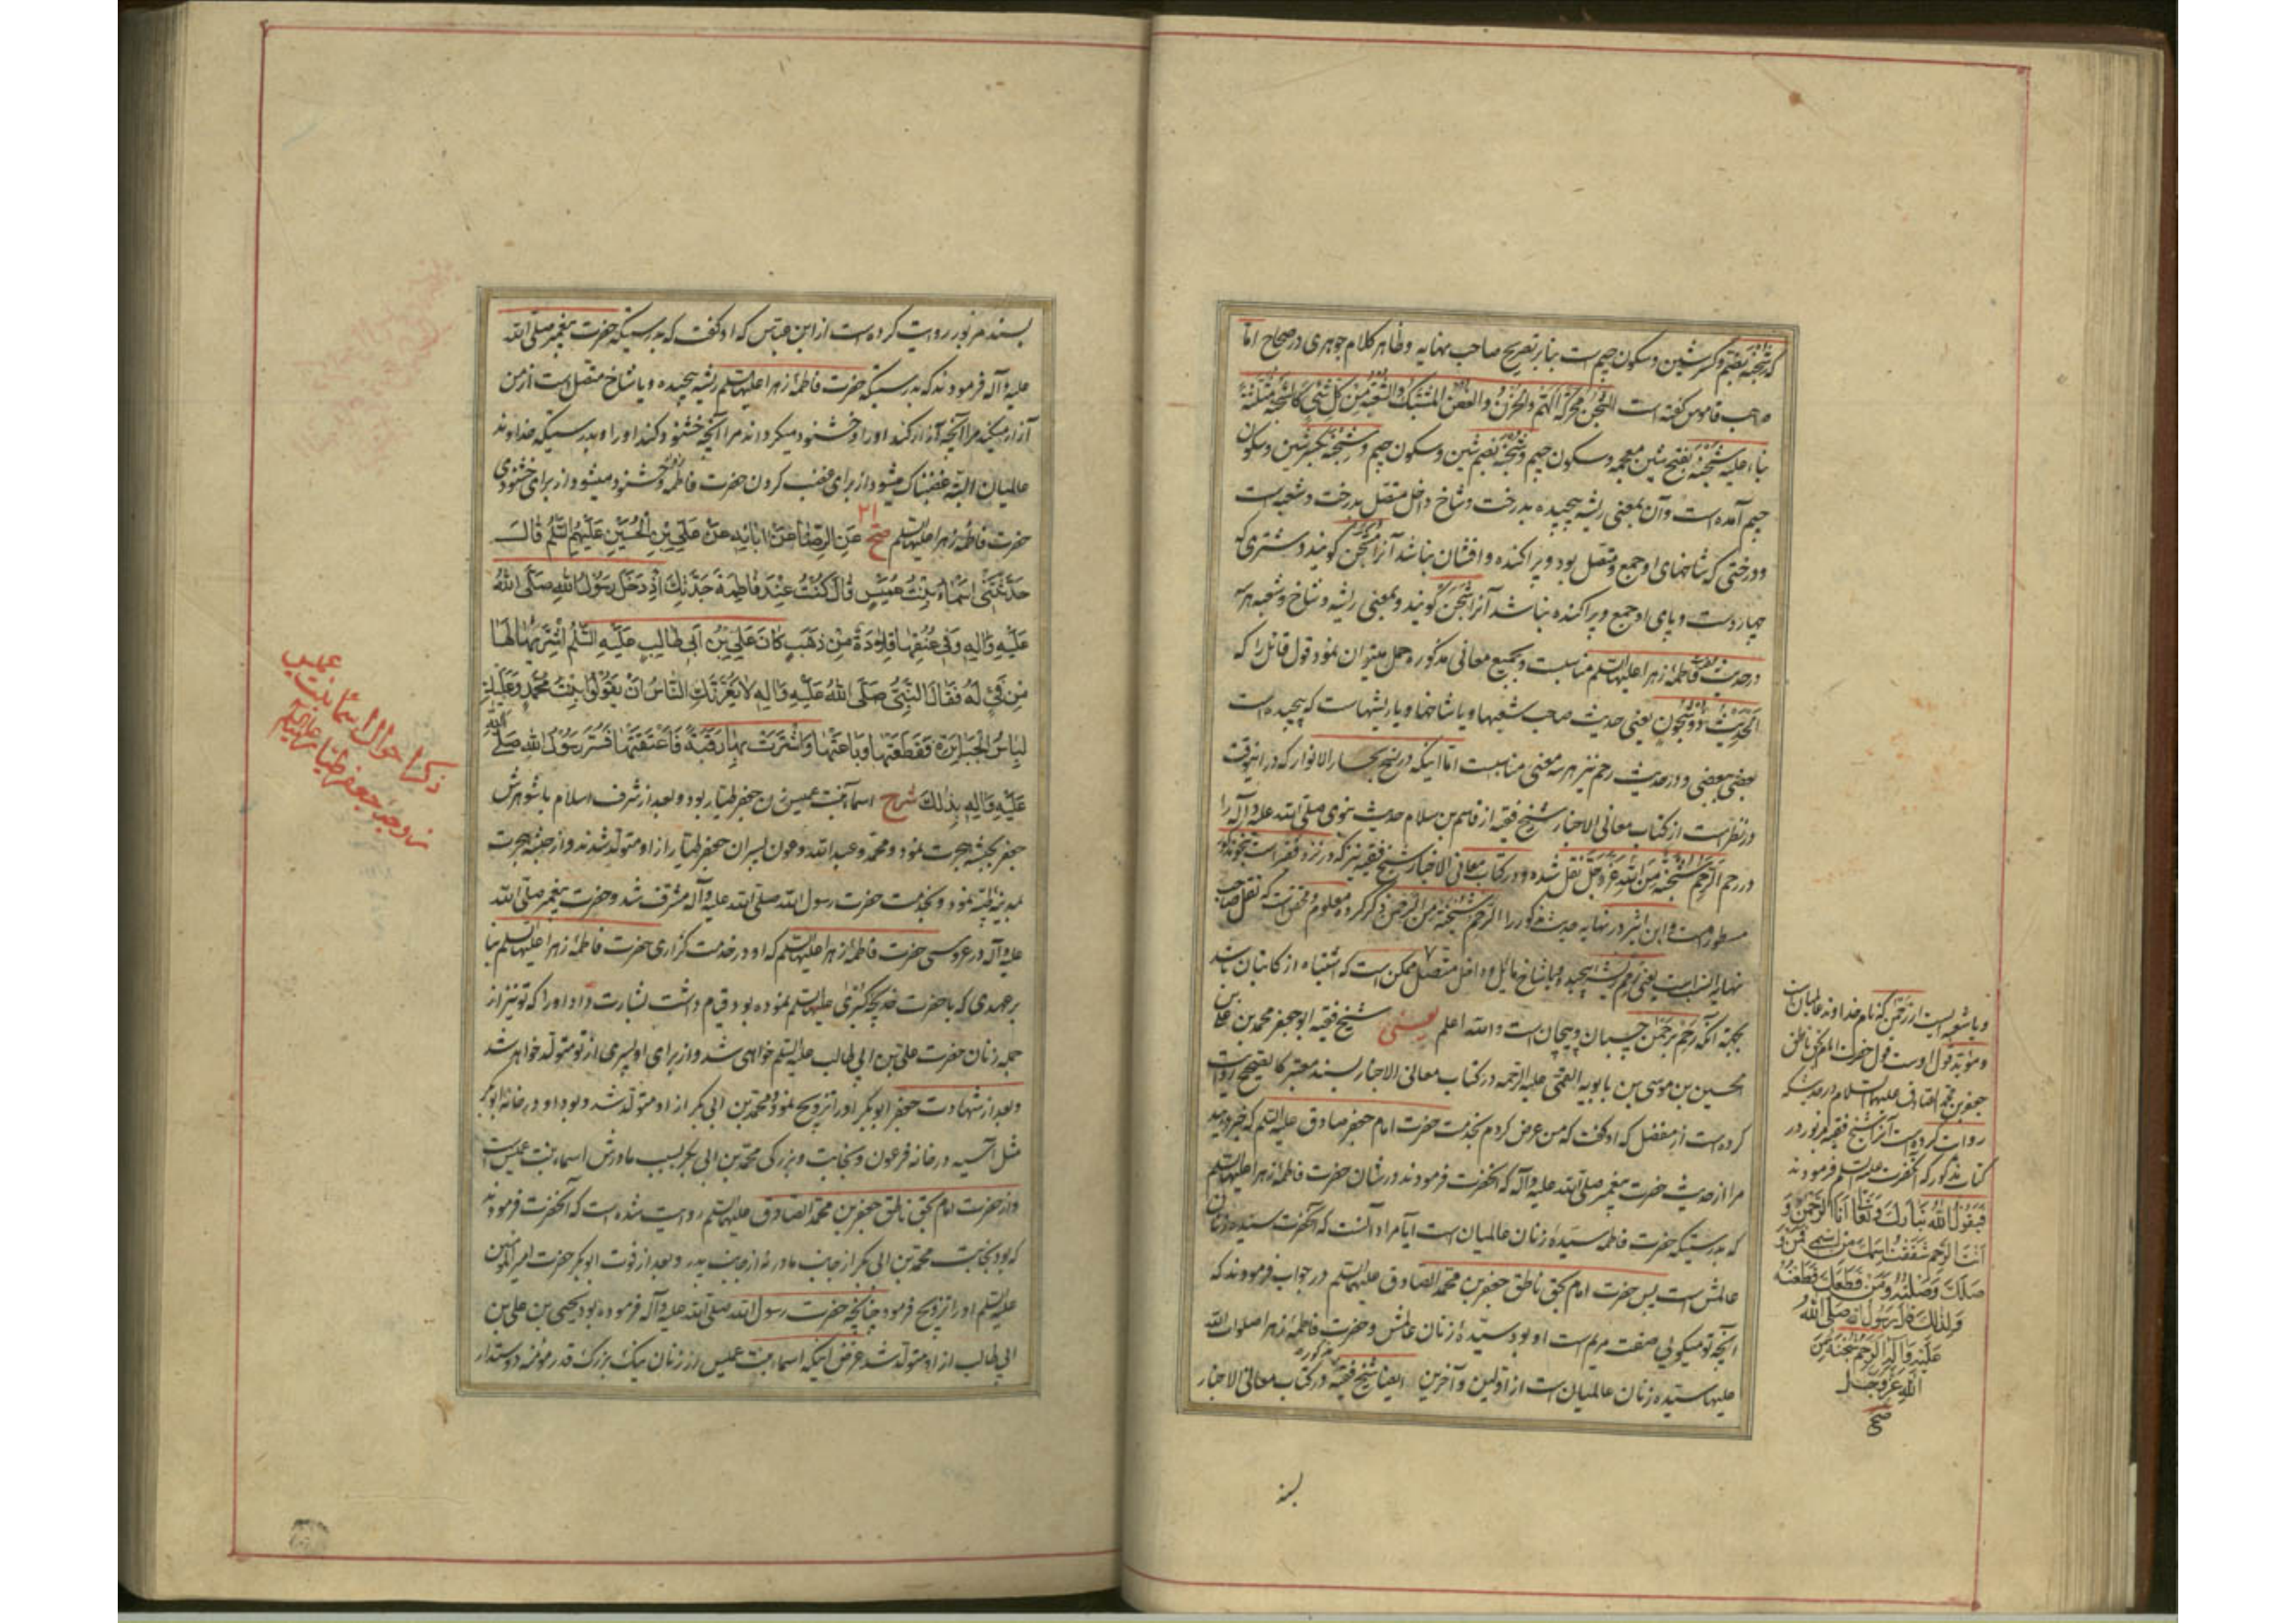 که شجنه بضم و کسر شین و سکون جیم است بنابر تصریح صاحب نهایه و ظاهر کلام جوهری در صحاح اما
صاحب قاموس گفته است الشجن محرکة الهم والحزن والغصن المشتبک والشعبة من کل شئ کالشجنة مثلثة
بناء علیه شجنه بفتح شین معجمه و سکون جیم و شجنه بضم شین و سکون جیم و شجنه بکسر شین و سکون
جیم آمده است و آن بمعنی ریشه پیچیده بدرخت و شاخ داخل متصل بدرخت و شعبه است
و درختی که شاخهای او جمع و متصل بود و پراکنده و افشان نباشد آنرا گویند و شتری که
و پای او جمع و پراکنده نباشد آنرا شجن گویند و بمعنی ریشه و شاخ و شعبه هر سه
در حدیث فاطمه زهرا علیها السلم مناسبست و بجمیع معانی مذکوره حمل میتوان نمود قول قائل را که
الحدیث ذو شجون یعنی حدیث صاحب شعبها و یا شاخها و یا ریشهاست که پیچیده است
بعضی ببعضی و در حدیث رحم نیز هر سه معنی مناسبست اما اینکه در نسخ بحار الانوار که در اینوقت
در نظر است از کتاب معانی الاخبار شیخ فقیه از قاسم بن سلام حدیث نبوی صلی الله علیه و آله را
در رحم الرحم شجنة من الله عز و جل نقل شده و در کتاب معانی الاخبار شیخ فقیه نیز که در نزد فقیر است
مسطور است و ابن اثیر در نهایه حدیث مذکور را الرحم شجنة من الرحمن ذکر کرده معلوم که نقل صاحب
نهایه انسب است یعنی رحم ریشه پیچیده و یا شاخ مائل و داخل متصل ممکن است که اشتباه از کاتبان باشد
بجهة آنکه رحم برحمن چسبان و پیچان است والله اعلم شیخ فقیه ابو جعفر محمد بن علی بن
الحسین بن موسی بن بابویه القمی علیه الرحمه در کتاب معانی الاخبار بسند معتبر کالصحیح روایت
کرده است از مفضل که او گفت که من عرض کردم بخدمت حضرت امام جعفر صادق علیه السلم که خبر دهید
مرا از حدیث حضرت پیغمبر صلی الله علیه و آله که آنحضرت فرمودند در شان حضرت فاطمه زهرا علیها السلم
که بدرستیکه حضرت فاطمه سیده زنان عالمیان است آیا مراد آنست که آنحضرت سیده زنان
عالمش است پس حضرت امام بحق ناطق جعفر بن محمد الصادق علیهما السلم در جواب فرمودند که
آنچه تو میگویی صفت مریم است او بود سیدۀ زنان عالمش و حضرت فاطمۀ زهرا صلوات الله
علیها سیده زنان عالمیان است از اولین و آخرین ایضا شیخ فقیه در کتاب معانی الاخبار
و یا شعبه ایست از رحمن که نام خداوند عالمیان است
و مؤید قول اوست قول حضرت امام بحق ناطق
جعفر بن محمد الصادق علیهما السلام در حدیثیکه
روایت کرده است آنرا شیخ فقیه مزبور در
کتاب مذکور که آنحضرت علیه السلم فرمودند
فیقول الله تبارک وتعالی انا الرحمن و
انت الرحم شققت اسمک من اسمی فمن و
صلک وصلته ومن قطعک قطعته
ولذلک قال رسول الله صلی الله
علیه وآله الرحم شجنة من
الله عز وجل
صح
بسند
بسند مزبور روایت کرده است از ابن عباس که او گفت که بدرستیکه حضرت پیغمبر صلی الله
علیه و آله فرمودند که بدرستیکه حضرت فاطمۀ زهرا علیها السلم ریشه پیچیده و یا شاخ متصل است از من
آزار میکند مرا آنچه آزار کند او را و خشنود میگرداند مرا آنچه خشنود کند او را و بدرستیکه خداوند
عالمیان البته غضبناک میشود از برای غضب کردن حضرت فاطمه و خشنود میشود از برای خشنودی
حضرت فاطمۀ زهرا علیها السلم صح ۲۱ عن الرضا عن ابائه عن علی بن الحسین علیهم السلم قال
حدثتنی اسماء بنت عمیس قال کنت عند فاطمة جدتک اذ دخل رسول الله صلی الله
علیه وآله وفی عنقها قلادة من ذهب کان علی بن ابی طالب علیه السلم اشتریها لها
من فئ له فقال النبی صلی الله علیه وآله لا یغرنک الناس ان یقولوا بنت محمد وعلیک
لباس الجبابرة فقطعتها وباعتها واشترت بها رقبة فاعتقتها فسر رسول الله صلی الله
علیه وآله بذلک شرح اسماء بنت عمیس زن جعفر طیار بود و بعد از شرف اسلام با شوهرش
جعفر بحبشه هجرت نمود و محمد و عبد الله و عون پسران جعفر طیار از او متولد شدند و از حبشه هجرت
بمدینه طیبه نمود و بخدمت حضرت رسول الله صلی الله علیه و آله مشرف شد و حضرت پیغمبر صلی الله
علیه و آله در عروسی حضرت فاطمۀ زهرا علیها السلم که او در خدمت گزاری حضرت فاطمۀ زهرا علیها السلم بنا
بر عهدی که با حضرت خدیجه کبری علیها السلم نموده بود قیام داشت بشارت داد او را که تو نیز از
جمله زنان حضرت علی بن ابی طالب علیه السلم خواهی شد و از برای او پسری از تو متولد خواهد شد
و بعد از شهادت جعفر ابوبکر او را تزویج نمود و محمد بن ابی بکر از او متولد شد و بود او در خانۀ ابوبکر
مثل آسیه در خانه فرعون و نجابت و بزرگی محمد بن ابی بکر بسبب مادرش اسماء بنت عمیس است
و از حضرت امام بحق ناطق جعفر بن محمد الصادق علیهما السلم روایت شده است که آنحضرت فرمودند
که بود نجابت محمد بن ابی بکر از جانب مادر نه از جانب پدر و بعد از فوت ابوبکر حضرت امیر المؤمنین
علیه السلم او را تزویج فرمود چنانچه حضرت رسول الله صلی الله علیه و آله فرموده بود یحیی بن علی بن
ابی طالب از او متولد شد غرض اینکه اسماء بنت عمیس از زنان نیک بزرگ قدر مؤمنه دوستدار
ذکر احوال اسماء بنت عمیس
زوجۀ جعفر طیار